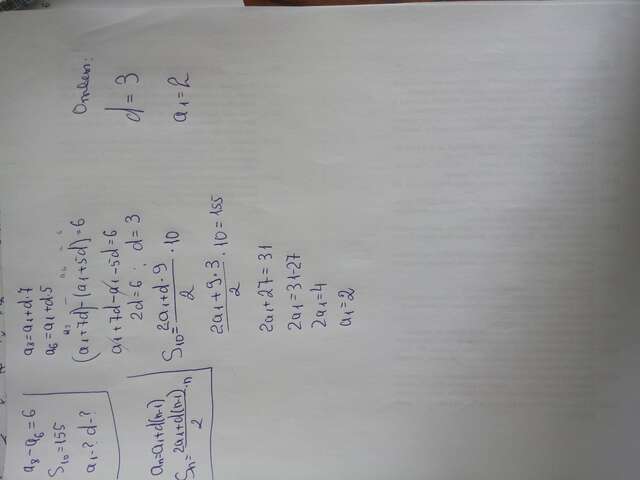 a₈ - a₆ = 6
S₁₀ = 155
a₁ - ? d - ?
aₙ = a₁ + d(n-1)
Sₙ = (2a₁ + d(n-1))/2 · n
a₈ = a₁ + d·7
a₆ = a₁ + d·5
(a₁ + 7d) - (a₁ + 5d) = 6
a₁ + 7d - a₁ - 5d = 6
2d = 6 ; d = 3
S₁₀ = (2a₁ + d·9)/2 · 10
(2a₁ + 9·3)/2 · 10 = 155
2a₁ + 27 = 31
2a₁ = 31-27
2a₁ = 4
a₁ = 2
Ответ:
d = 3
a₁ = 2